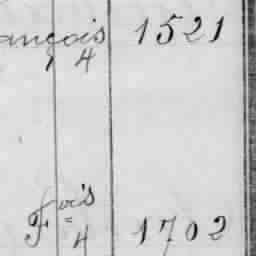 ançois 1521
4
Fois
4 1702